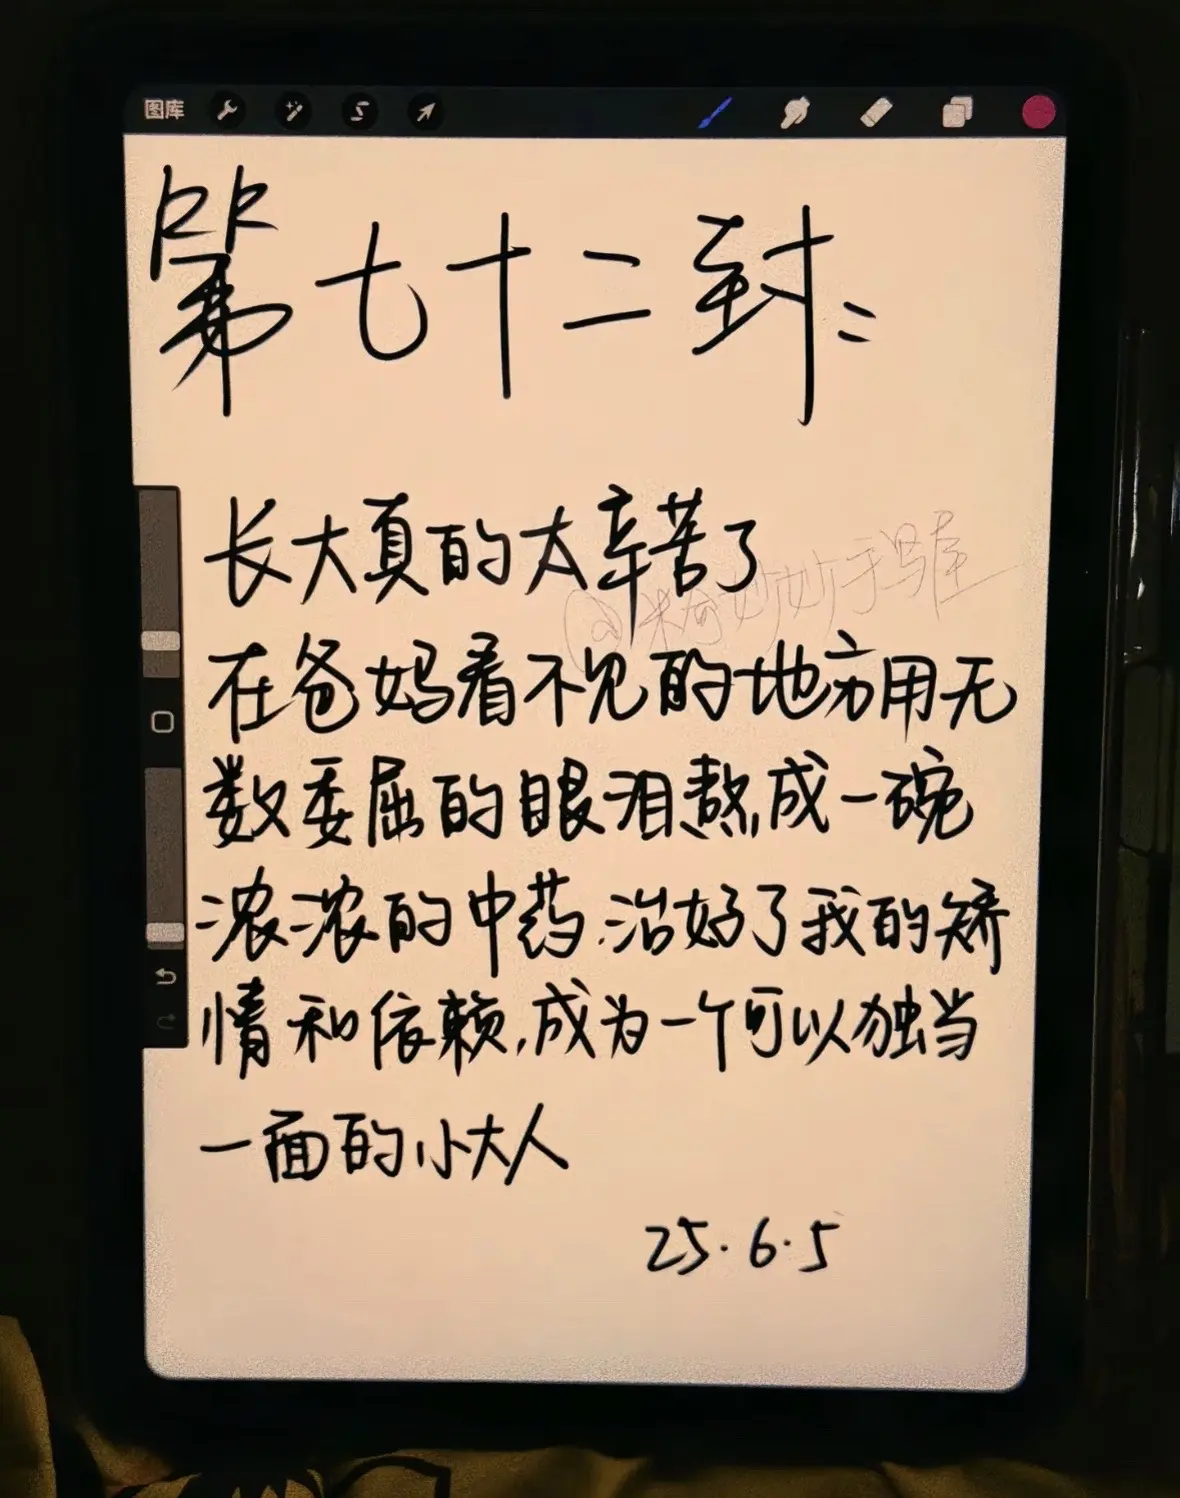 图库
第七十二封:
长大真的太辛苦了
在爸妈看不见的地方用无
数委屈的眼泪熬成一碗
浓浓的中药.治好了我的矫
情和依赖,成为一个可以独当
一面的小大人
25.6.5